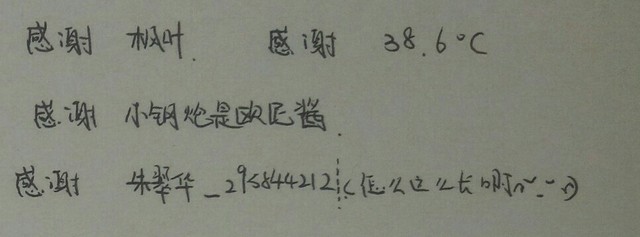 感谢 枫叶. 感谢 38.6°C
感谢 小钢炮是欧尼酱.
感谢 朱翠华_295844212 (怎么这么长啊